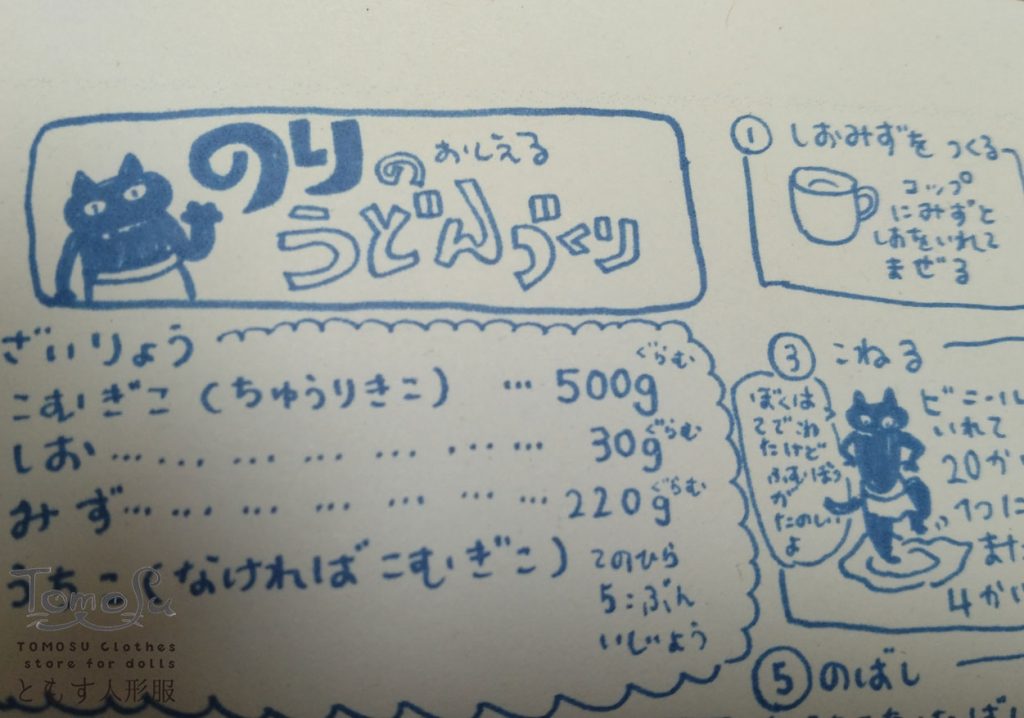 のりの おしえる
うどんづくり
ざいりょう
こむぎこ(ちゅうりきこ) … 500g ぐらむ
しお … … … … … … … 30g ぐらむ
みず… … … … … … … 220g ぐらむ
うちこ(なければ こむぎこ)
てのひら
5:ぶん
いじょう
① しおみずを つくる
コップ
にみずと
しおをいれて
まぜる
③ こねる
ぼくは
てでこね
たけど
ふむほう
が
たのしい
よ
ビニール
いれて
20かい
1つに
また
4かい
⑤ のばし
TomoSu
TOMOSU Clothes
store for dolls
ともす人形服